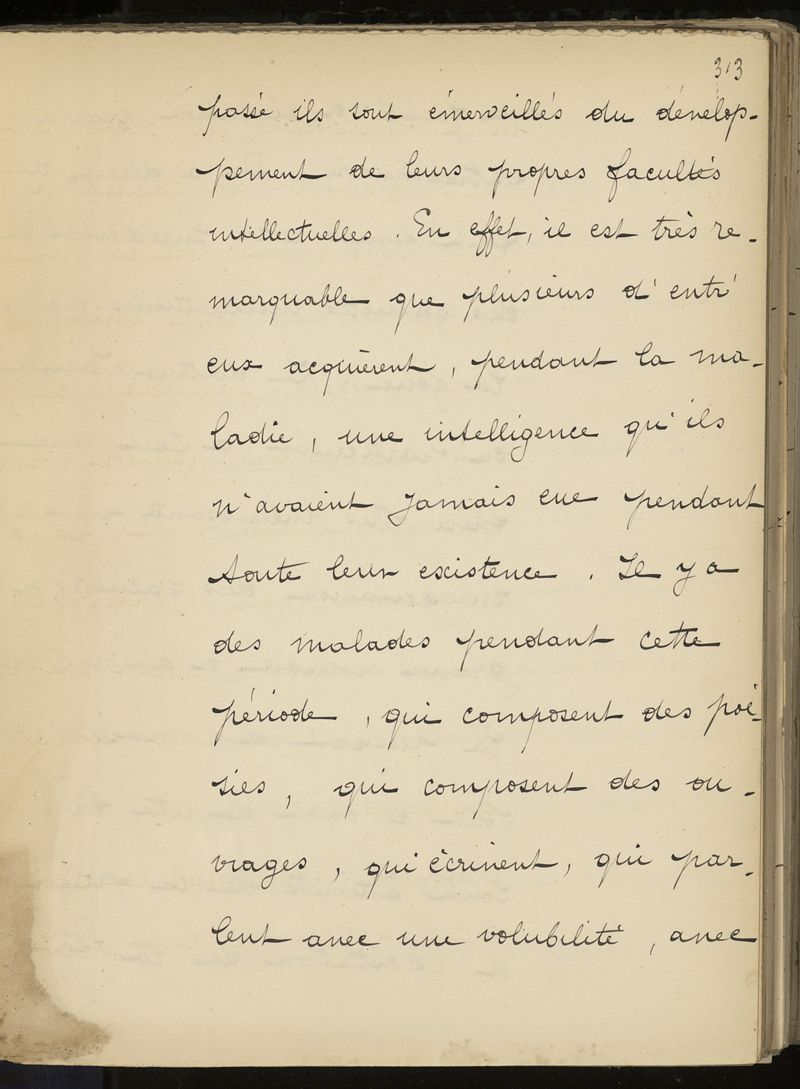 313
passé ils sont émerveillés du dévelop-
pement de leurs propres facultés
intellectuelles. En effet, il est très re-
marquable que plusieurs d'entr'
eux acquièrent, pendant la ma-
ladie, une intelligence qu'ils
n'avaient jamais eue pendant
toute leur existence. Il y a
des malades pendant cette
période, qui composent des poé-
sies, qui composent des ou-
vrages, qui écrivent, qui par-
lent avec une volubilité, avec